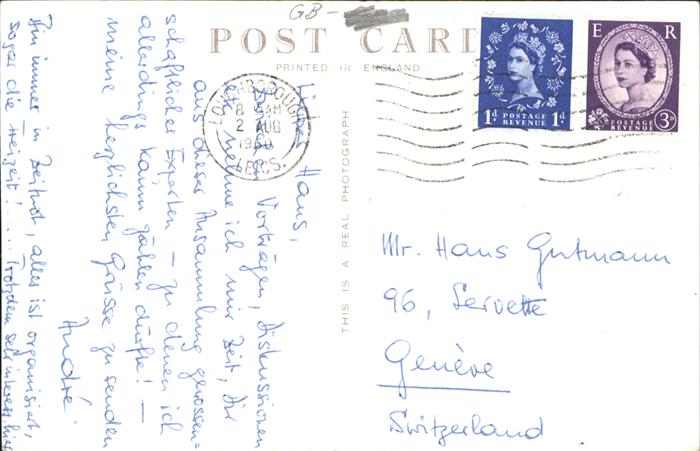 GB-
POST CARD
PRINTED IN ENGLAND
THIS IS A REAL PHOTOGRAPH
LOUGHBOROUGH
8 AM
2 AUG
1960
LEICS.
1d POSTAGE REVENUE 1d
E R
POSTAGE REVENUE 3d
Lieber Hans,
Vorträgen, Diskussionen
etc nehme ich mir Zeit, Dir
aus dieser Ansammlung genossen=
schaftlicher Experten – zu denen ich
allerdings kaum zählen dürfte! –
meine herzlichsten Grüsse zu senden
André.
Bin immer in Zeitnot, alles ist organisiert,
sogar die Freizeit! .... Trotzdem sehr interess. hier
Mr. Hans Gutmann
96, Servette
Genève
Switzerland